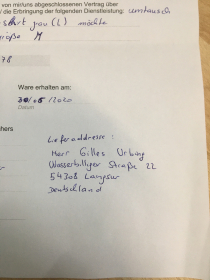 von mir/uns abgeschlossenen Vertrag über
die Erbringung der folgenden Dienstleistung: umtausch
möchte
größe M
78
Ware erhalten am:
30/05/2020
Datum
Lieferaddresse:
Herr Gilles Urbing
Wasserbilliger Straße 22
54308 Langsur
Deutschland